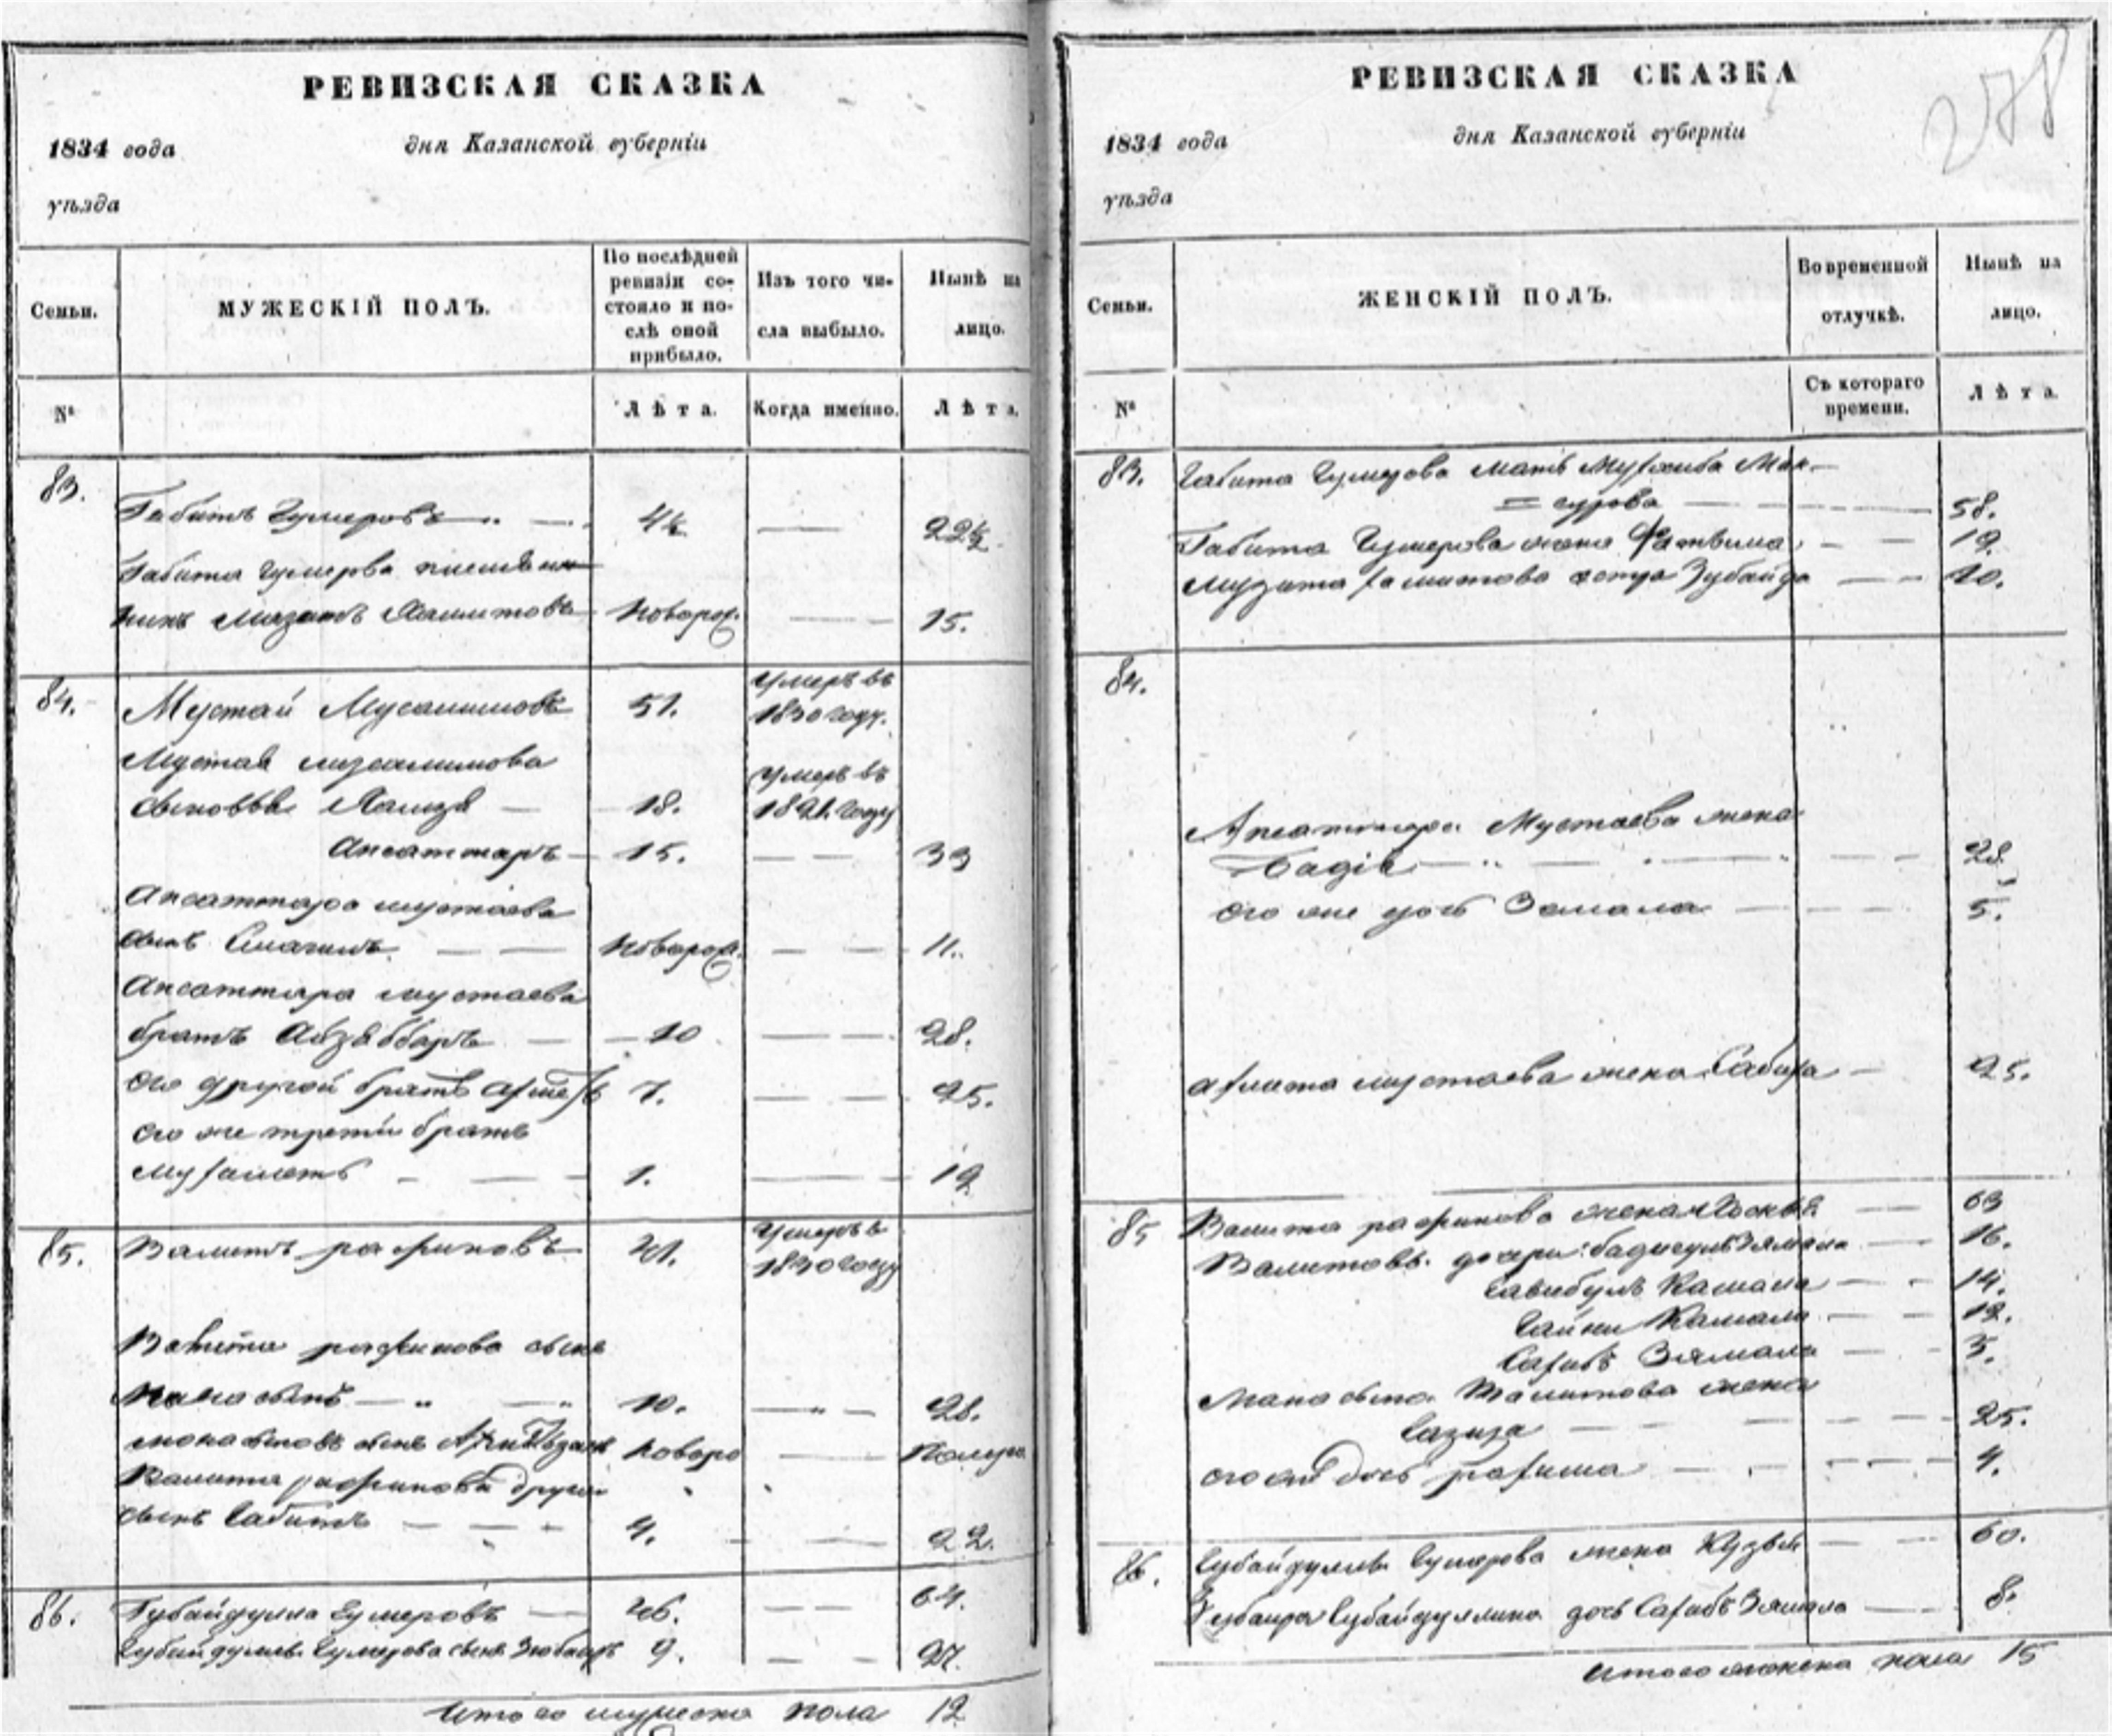 РЕВИЗСКАЯ СКАЗКА
1834 года дня Казанской губерніи
уѣзда
Семьи.
МУЖЕСКІЙ ПОЛЪ.
По послѣдней ревизіи состояло и послѣ оной прибыло.
Изъ того числа выбыло.
Нынѣ на лицо.
№
Лѣта.
Когда именно.
Лѣта.
83.
Габитъ Гумеровъ 4½ 22½
Габита Гумерова племян
никъ Хамитовъ Новорож. 15.
84. Мустай Мусалимовъ 51. Умеръ въ
1830 году.
Мустая мусалимова
сыновья 18. Умеръ въ
182 году
Апсаттаръ 15. 33
Апсаттара мустаева
сынъ Смагилъ Новорож. 11.
Апсаттара мустаева
братъ Абзябаръ 10 28.
его другой братъ 7. 25.
его же третій братъ
1. 19
85. Валитъ рафиковъ 41. Умеръ в
1830 году
Валита рафикова сынъ
10. 28.
сынъ Новоро
Валита рафикова другой
сынъ Сабитъ 4. 22.
86. Губайдулла Гумеровъ 46. 64.
Губайдуллы Гумерова сынъ Зюбаиръ 9. 27.
Итого мужеска пола 12
РЕВИЗСКАЯ СКАЗКА
278
1834 года дня Казанской губерніи
уѣзда
Семьи.
ЖЕНСКІЙ ПОЛЪ.
Во временной отлучкѣ.
Нынѣ на лицо.
№
Съ котораго времени.
Лѣта.
83. Габита Гумерова мать Ман
= сурова 58.
Габита Гумерова жена Фатвима 19.
сестра Зубайда 10.
84.
Апсаттара Мустаева жена
Бадія 28.
его же дочь Замала 5.
мустаева жена Сабира 25.
85 Валита рафикова жена 63
Валитовы дочери: 16.
Камала 14.
Гайни Камала 12.
Сахибъ Зямала 5.
Валитова жена
Газиза 25.
его дочь рахима 4.
86. Губайдуллы Гумерова жена 60.
Губайдуллина дочь Сахибъ Зямала 8.
Итого женска пола 15